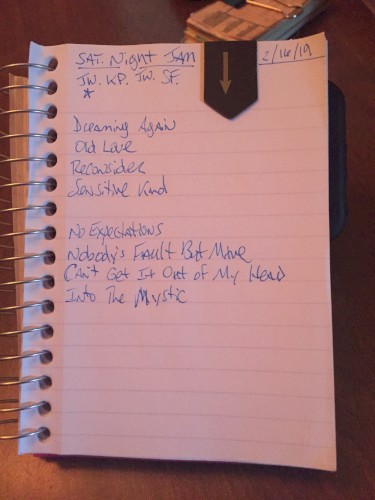 SAT. Night JAM
2/16/19
JW. KP. JW. SF.
*
Dreaming Again
Old Love
Reconsider
Sensitive Kind
No Expectations
Nobody's Fault But Mine
Can't Get It Out of My Head
Into The Mystic